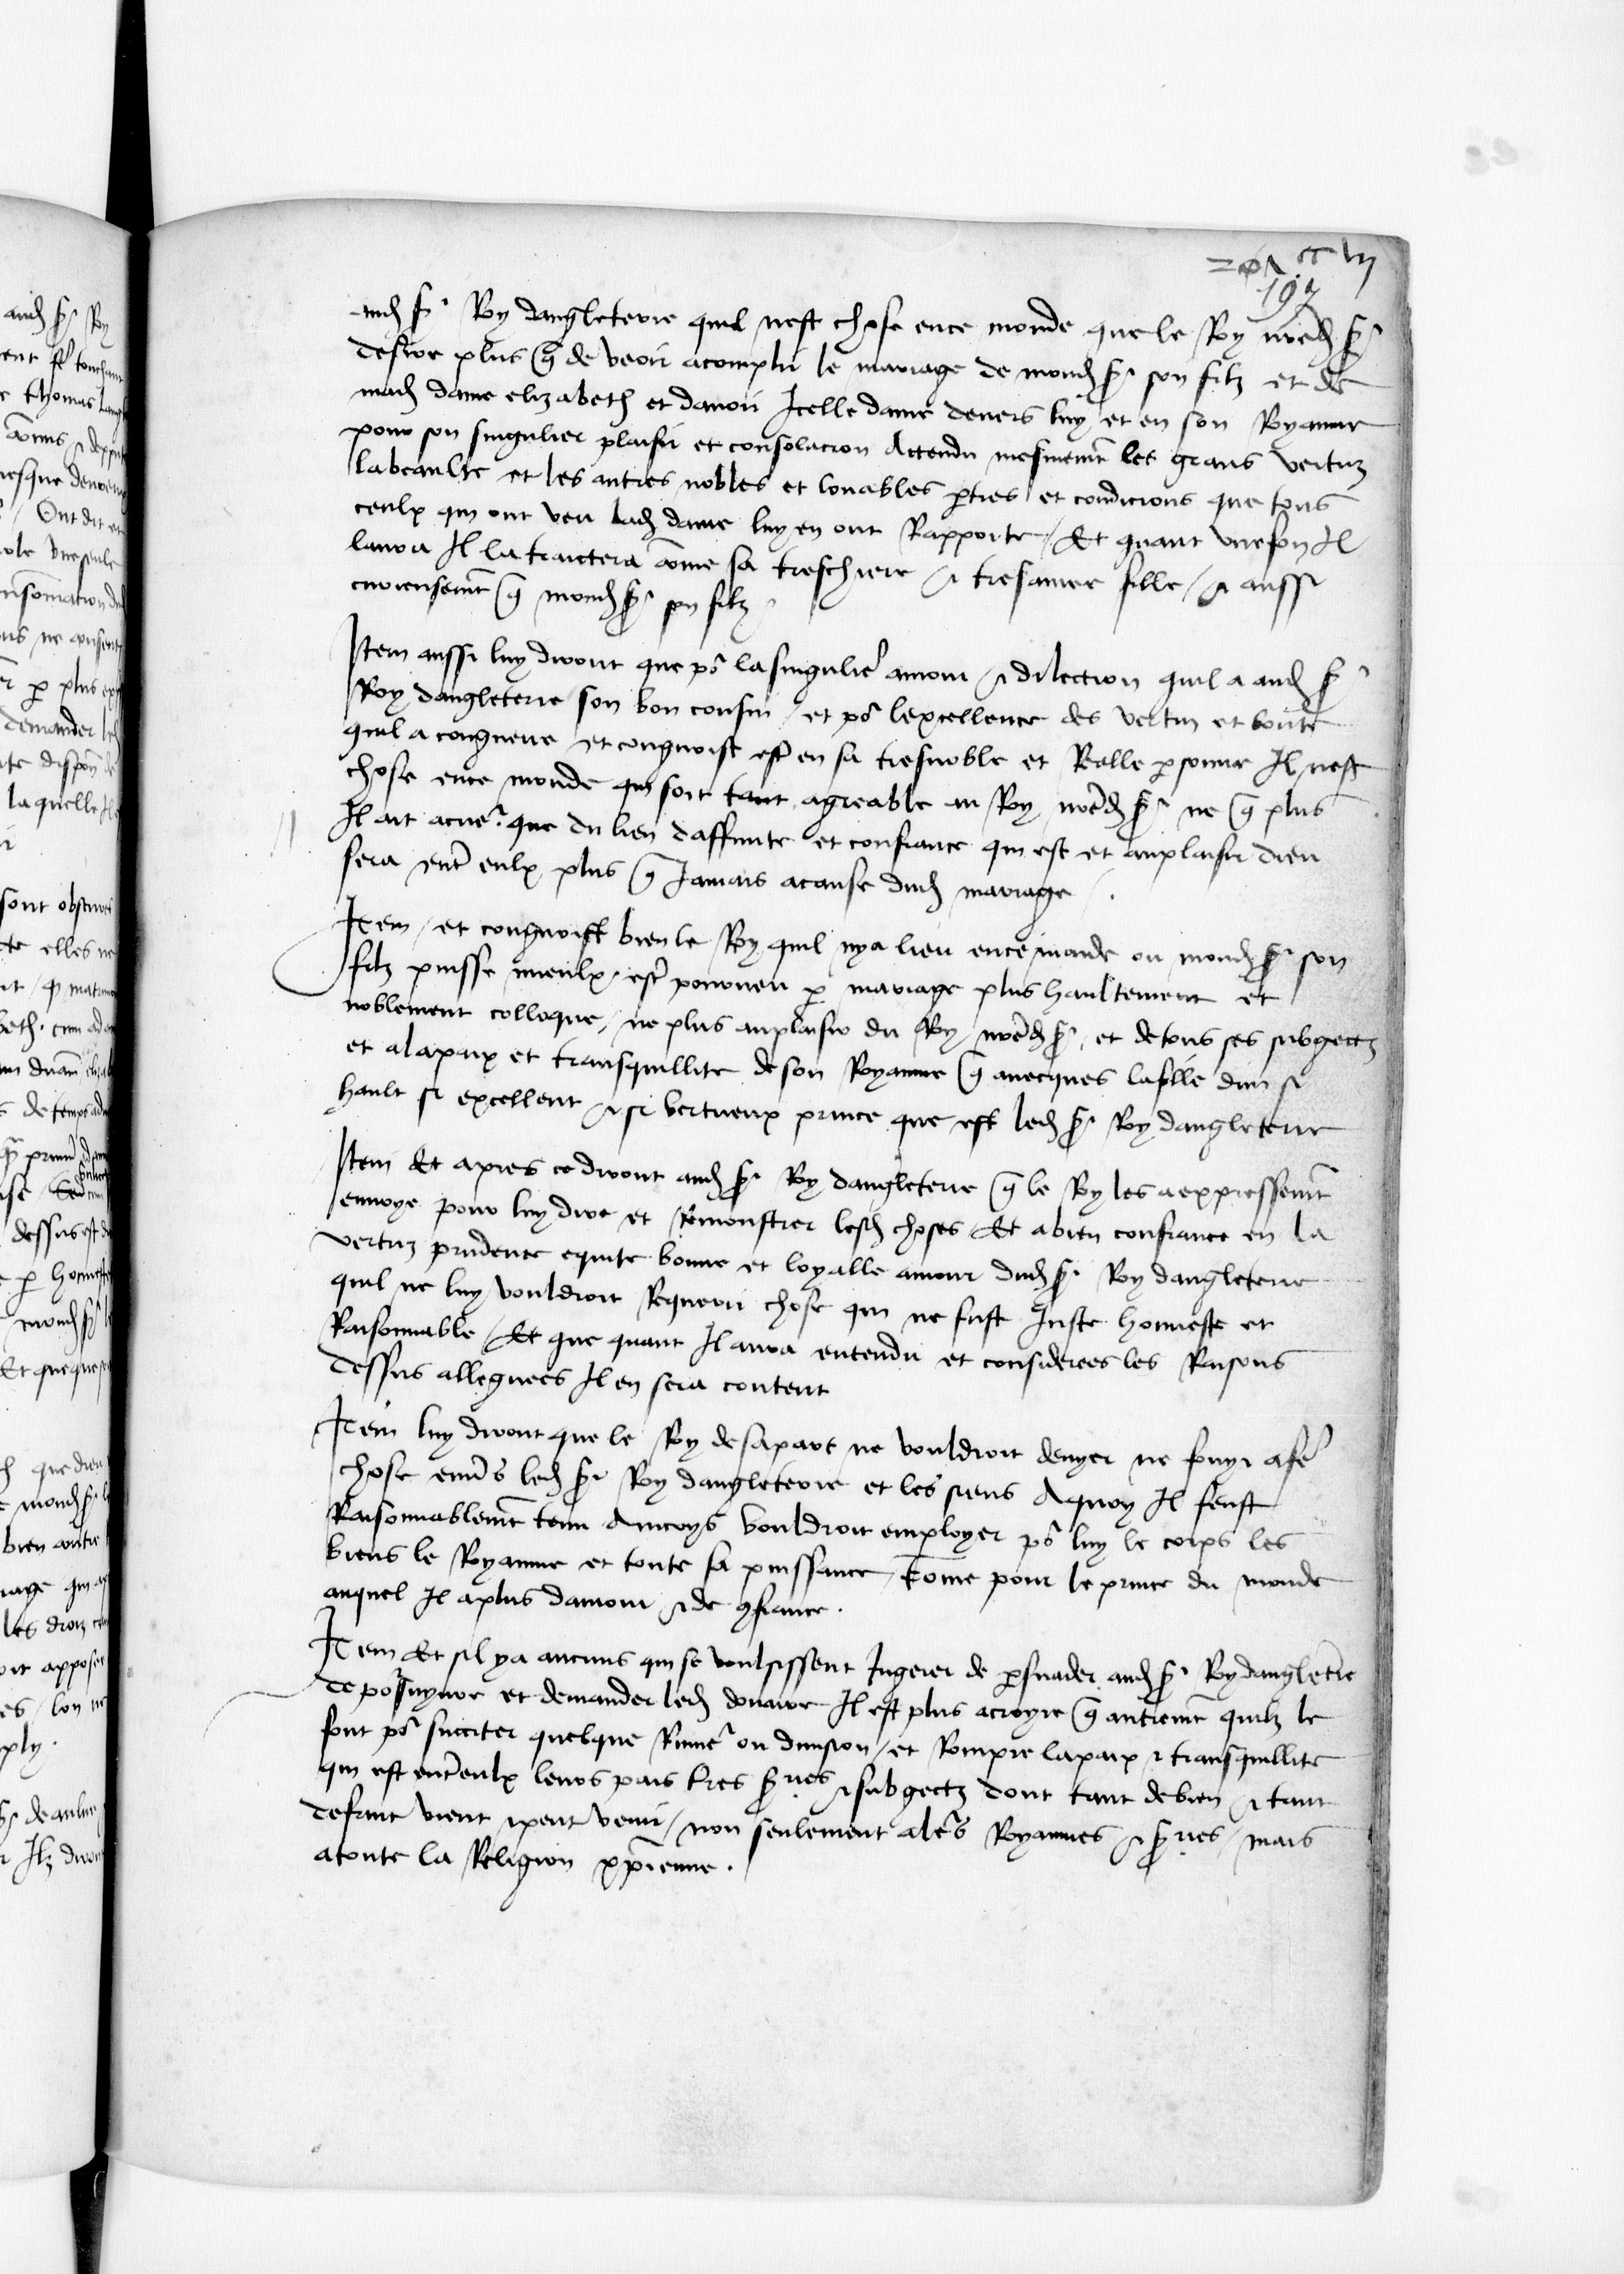 197
aud Sr Roy dangleterre quil nest chose ence monde que le Roy nred Sr
desire plus q de veoir acomplir le mariage de mond Sr son filz et de
mad dame elizabeth et davoir Icelle dame devers luy et en son Royaume
pour son singulier plaisir et consolacion Attendu mesmemt les grans vertuz
labeaulte et les autres nobles et louables pties et condicions que tous
ceulx qui ont veu lad dame luy en ont Rapporte / Et quant unefoiz Il
laura Il la traictera come sa treschiere & tresamee fille / & aussi
curieusemt q mond Sr son filz
Item aussi luy diront que por la singuliere amour & dilection quil a aud Sr
Roy dangleterre son bon cousin / et por lexcellence des vertuz et bonte
quil a congneue et congnoist estre en sa tresnoble et Realle psonne Il nest
chose ence monde qui soit tant agreable au Roy nred Sr ne q plus
Il ait acuer que du lien daffinite et confiance qui est et auplaisir dieu
sera entre eulx plus q Jamais acause dud mariage
Item / et congnoist bien le Roy quil nya lieu ence monde ou mond Sr son
filz puisse mieulx estre pourveu p mariage plus haultement et
noblement colloque / ne plus auplaisir du Roy nred Sr et detous ses subgectz
et alapaix et transquillite de son Royaume q avecques lafille dun si
hault si excellent & si vertueux prince que est led Sr Roy dangleterre
Item Et apres ce diront aud Sr Roy dangleterre q le Roy les a expressemt
envoye pour luy dire et Remonstrer lesd choses Et a bien confiance en la
vertuz prudence equite bonne et loyalle amour dud Sr Roy dangleterre
quil ne luy vouldroit Requerir chose qui ne fust Juste honneste et
Raisonnable / Et que quant Il aura entendu et considerees les Raisons
dessus alleguees Il en sera content
Item luy diront que le Roy desapart ne vouldroit denyer ne fouyr afe
chose envers led Sr Roy dangleterre et les siens Aquoy Il feust
Raisonnablemt tenu Aincoys vouldroit employer por luy le corps les
biens le Royaume et toute sa puissance / Come pour le prince du monde
auquel Il aplus damour & de 9fiance .
Item Et sil ya aucuns qui se voulsissent Ingerer de psuader aud Sr Roy dangleterre
de porsuyvre et demander led douaire Il est plus acroyre q autremt quilz le
font por susciter quelque Rumer ou division / et Rompre lapaix & transquillite
qui est entreulx leurs pais tres Sries & subgectz dont tant debien & tant
defruit vient & peut venir / non seulement alers Royaumes & Sries / mais
atoute la Religion xpienne .